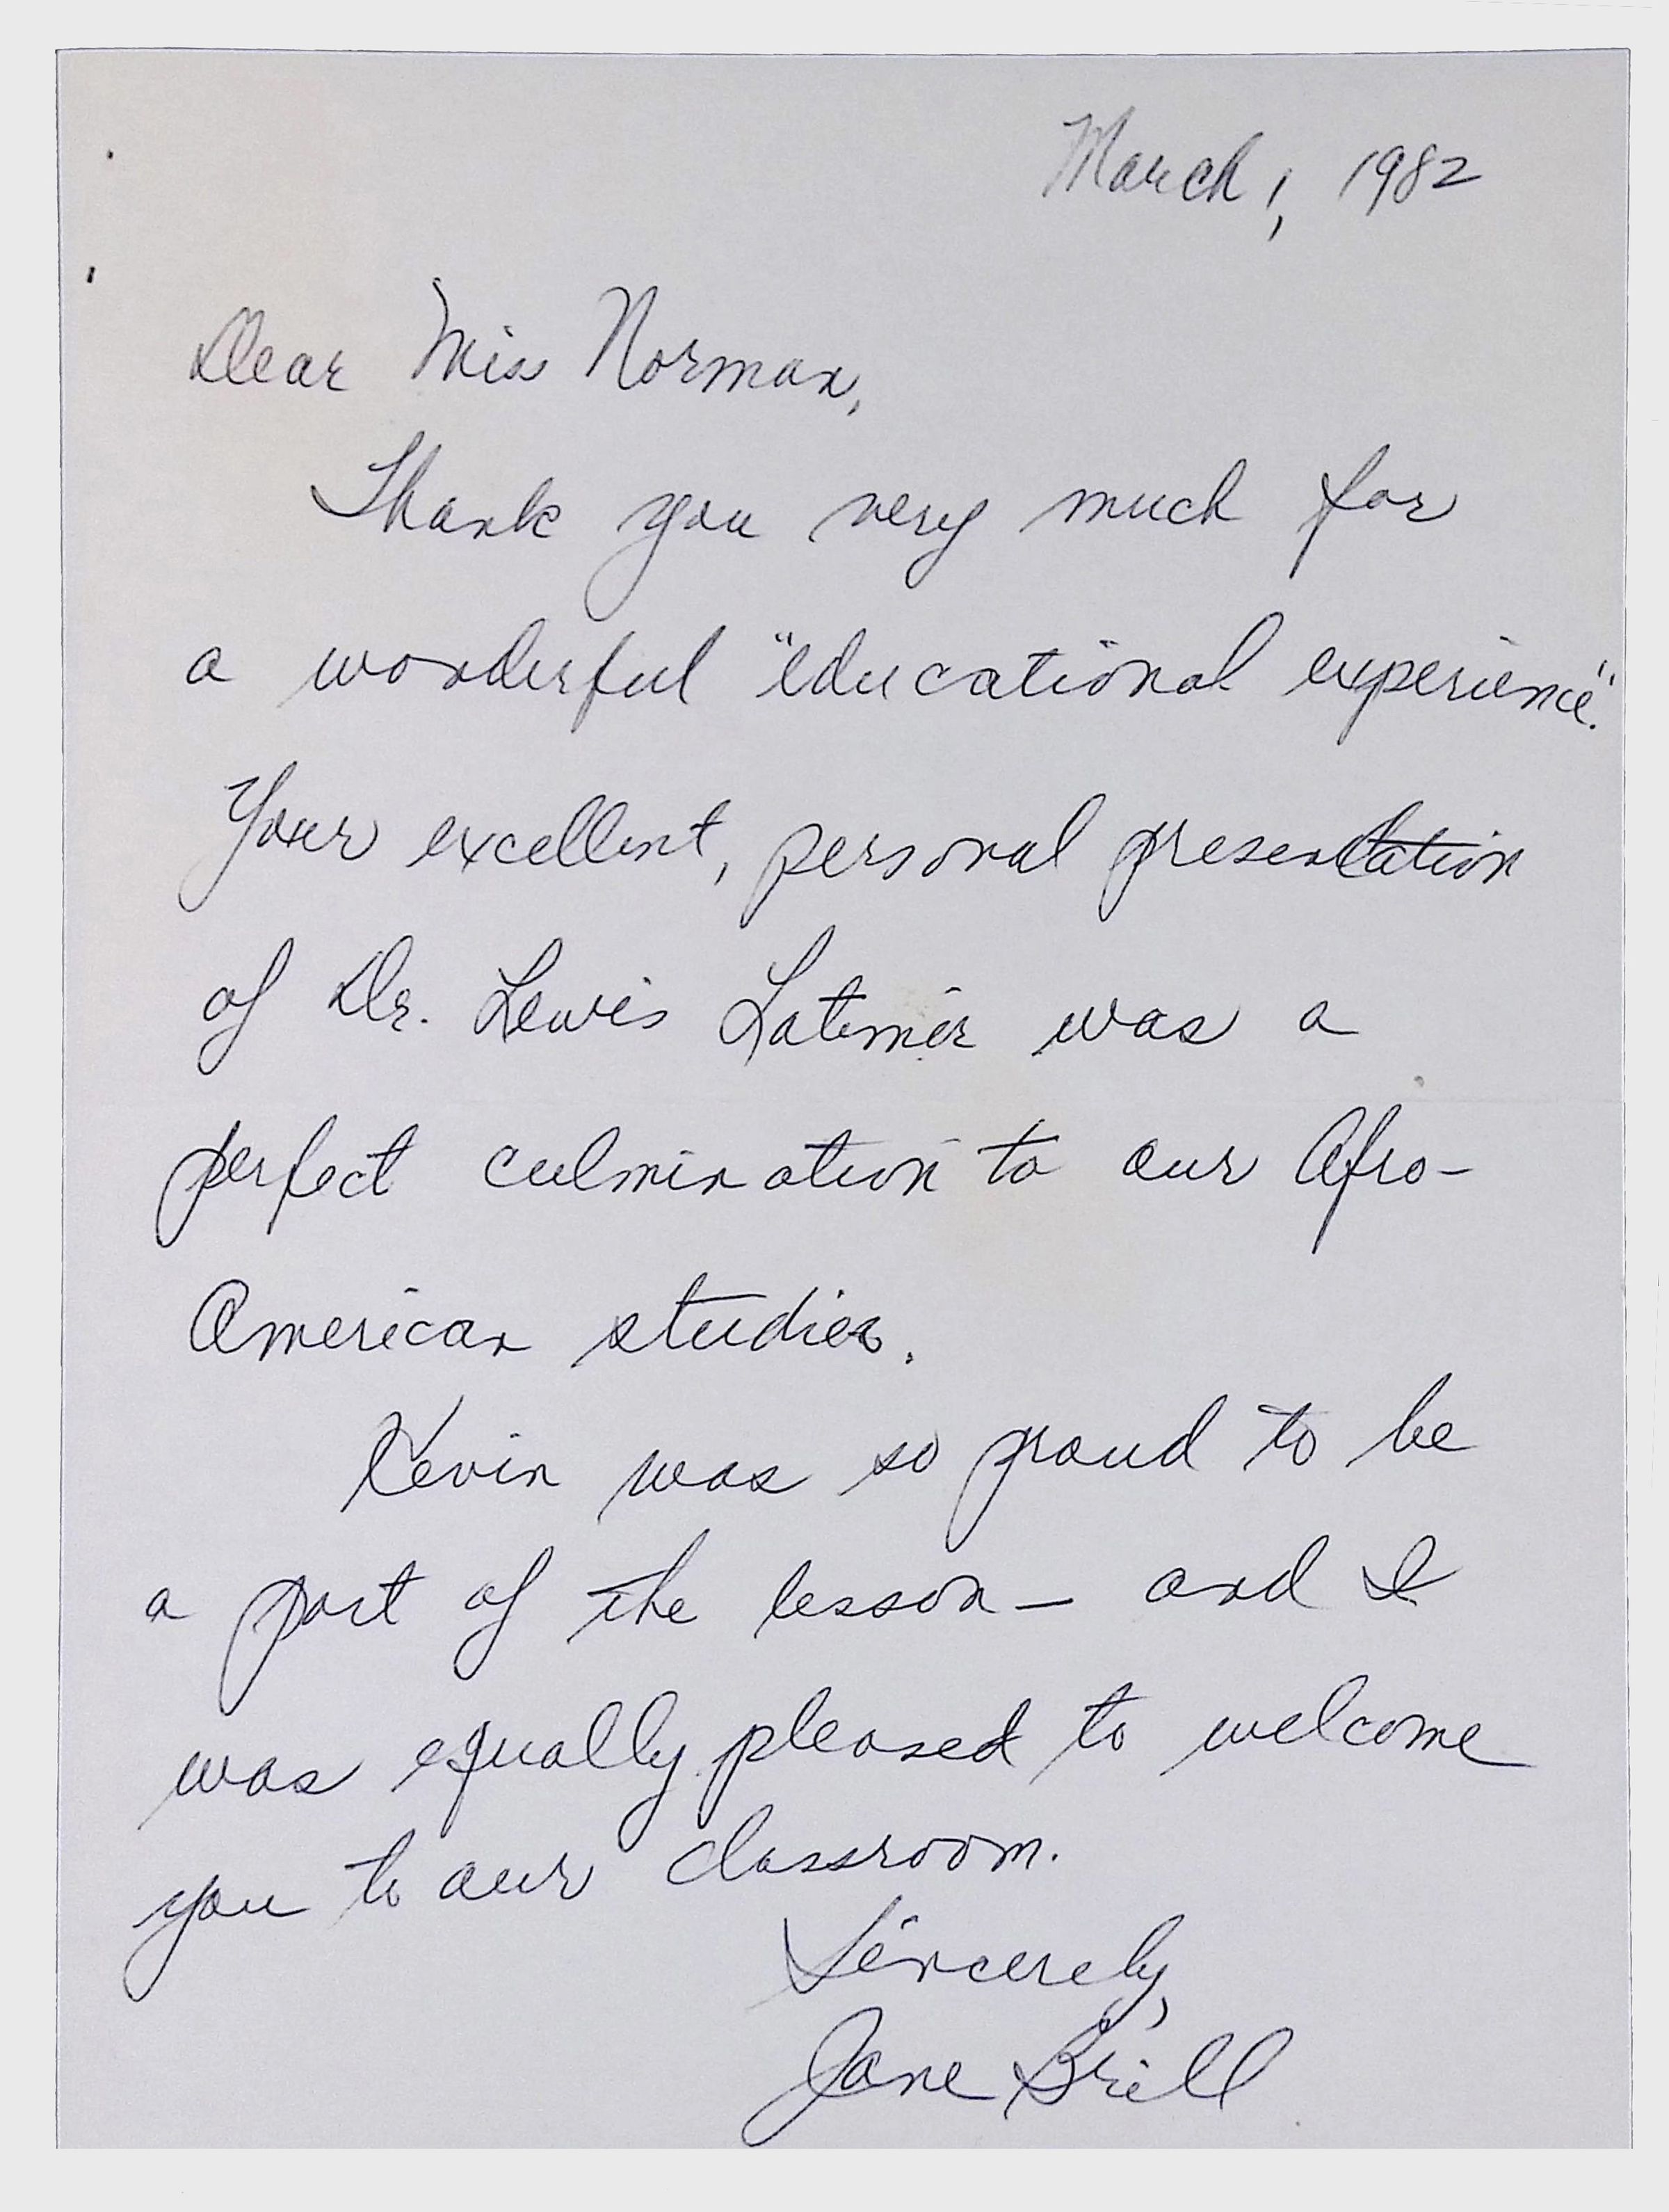 March 1, 1982
Dear Miss Norman,
Thank you very much for
a wonderful "educational experience".
Your excellent, personal presentation
of Dr. Lewis Latimer was a
perfect culmination to our Afro-
American studies.
Kevin was so proud to be
a part of the lesson — and I
was equally pleased to welcome
you to our classroom.
Sincerely,
Jane Brill